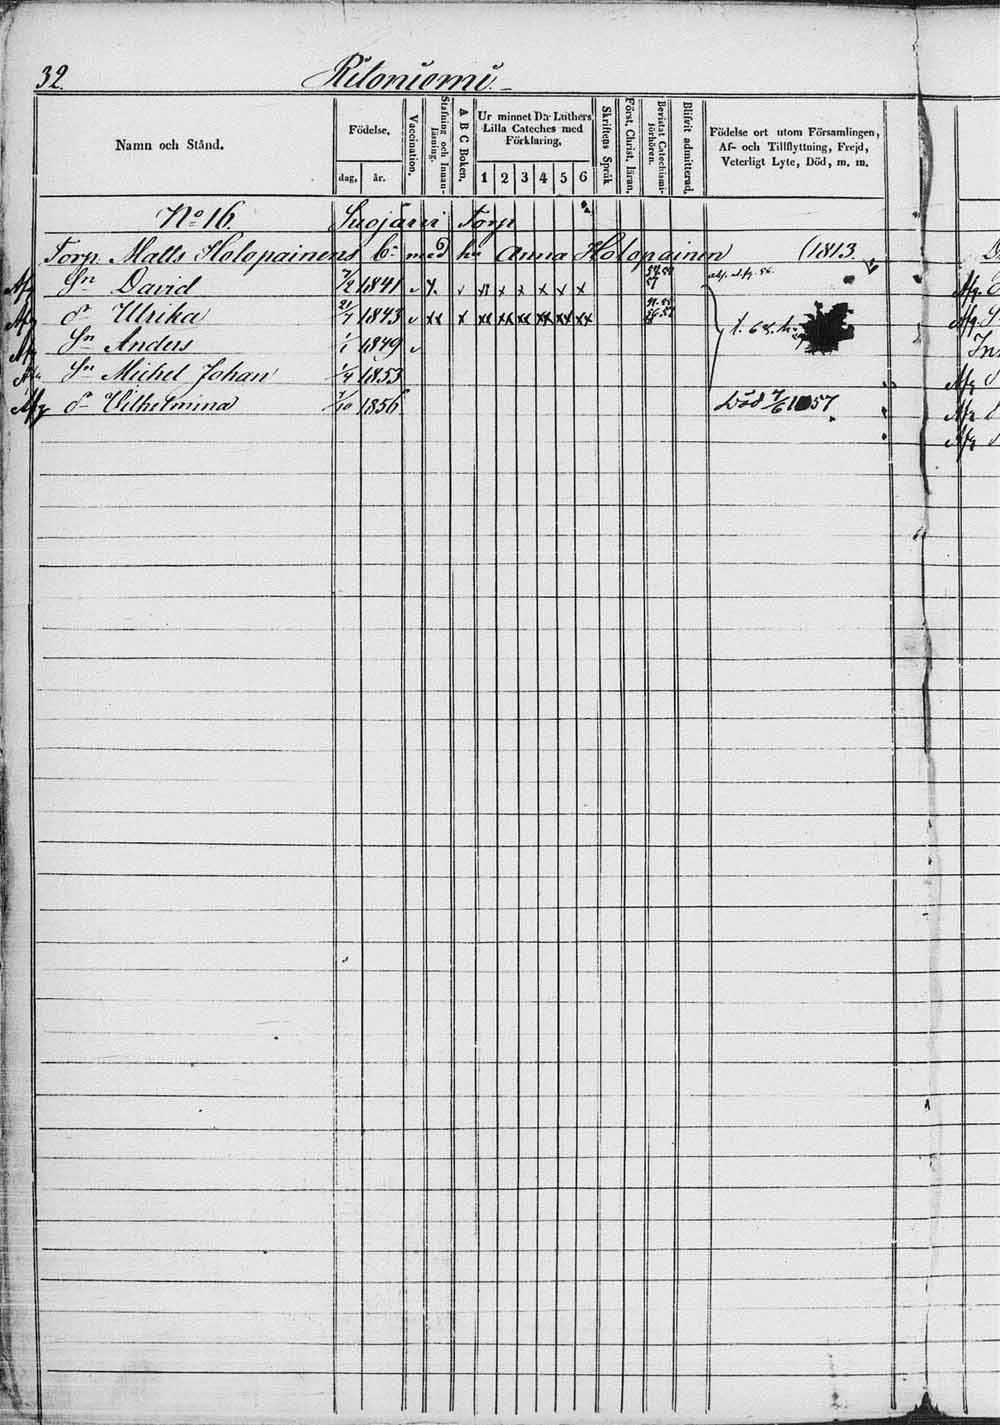 32.
Ritoniemi.
Namn och Stånd.
Födelse,
dag, år.
Vaccination.
Stafning och Innanläsning.
A B C Boken.
Ur minnet D:r Luthers Lilla Cateches med Förklaring,
1 2 3 4 5 6
Skriftens Språk
Först. Christ. läran.
Bevistat Catechismiförhören.
Blifvit admitterad.
Födelse ort utom Församlingen,
Af- och Tillflyttning, Frejd,
Veterligt Lyte, Död, m. m.
No 16. Suojärvi Torp
Torp. Matts Holopainens b:n med hu Anna Holopainen (1813.
Afg Sn David 7/2 1841
Afg dr Ulrika 21/7 1843
Afg Sn Anders 1/1 1849
Sn Michel Johan 1/4 1853
Afg dr Vilhelmina 7/10 1856 Död 7/6 1857
Afg.
Afg.
Afg
Afg
Afg